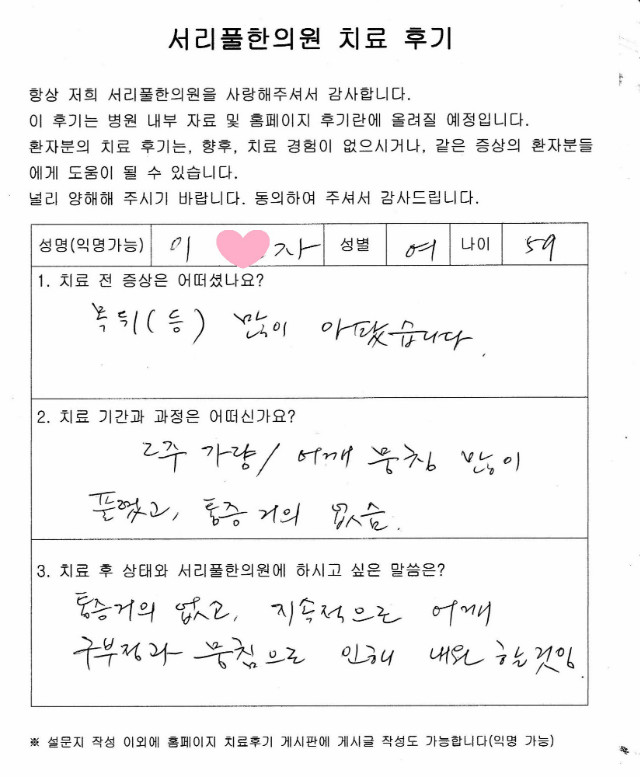 서리풀한의원 치료 후기
항상 저희 서리풀한의원을 사랑해주셔서 감사합니다.
이 후기는 병원 내부 자료 및 홈페이지 후기란에 올려질 예정입니다.
환자분의 치료 후기는, 향후, 치료 경험이 없으시거나, 같은 증상의 환자분들
에게 도움이 될 수 있습니다.
널리 양해해 주시기 바랍니다. 동의하여 주셔서 감사드립니다.
성명(익명가능) 이 자 성별 여 나이 59
1. 치료 전 증상은 어떠셨나요?
목뒤(등) 많이 아팠습니다.
2. 치료 기간과 과정은 어떠신가요?
2주 가량/ 어깨 뭉침 많이
풀렸고, 통증 거의 없슴.
3. 치료 후 상태와 서리풀한의원에 하시고 싶은 말씀은?
통증거의 없고, 지속적으로 어깨
구부정과 뭉침으로 인해 내원 할것임.
※ 설문지 작성 이외에 홈페이지 치료후기 게시판에 게시글 작성도 가능합니다(익명 가능)